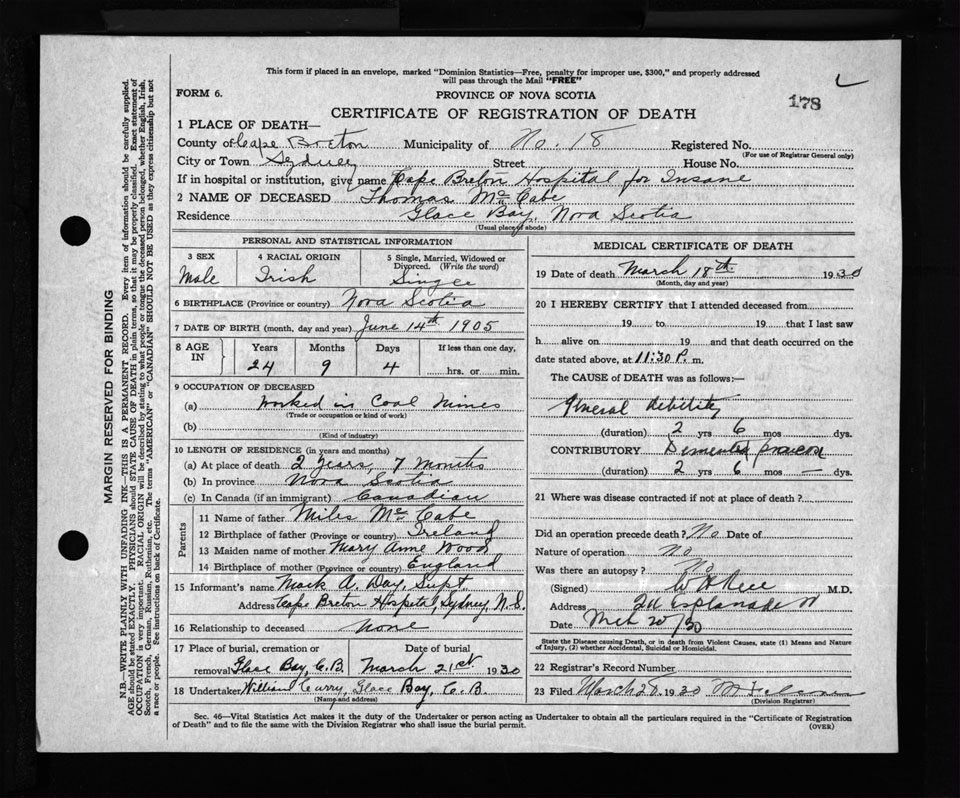 This form if placed in an envelope, marked "Dominion Statistics—Free, penalty for improper use, $300," and properly addressed
will pass through the Mail "FREE"
FORM 6.
PROVINCE OF NOVA SCOTIA
178
CERTIFICATE OF REGISTRATION OF DEATH
1 PLACE OF DEATH—
County of Cape Breton Municipality of No. 18 Registered No.
(For use of Registrar General only)
City or Town Sydney Street House No.
If in hospital or institution, give name Cape Breton Hospital for Insane
2 NAME OF DECEASED Thomas McCabe
Residence Glace Bay, Nova Scotia
(Usual place of abode)
PERSONAL AND STATISTICAL INFORMATION
3 SEX 4 RACIAL ORIGIN 5 Single, Married, Widowed or
Divorced. (Write the word)
Male Irish Single
6 BIRTHPLACE (Province or country) Nova Scotia
7 DATE OF BIRTH (month, day and year) June 14th 1905
8 AGE IN Years Months Days If less than one day,
24 9 4 hrs. or min.
9 OCCUPATION OF DECEASED
(a) Worked in Coal Mines
(Trade or occupation or kind of work)
(b)
(Kind of industry)
10 LENGTH OF RESIDENCE (in years and months)
(a) At place of death 2 Years, 7 Months
(b) In province Nova Scotia
(c) In Canada (if an immigrant) Canadian
Parents
11 Name of father Miles McCabe
12 Birthplace of father (Province or country) Ireland
13 Maiden name of mother Mary Anne Wood
14 Birthplace of mother (Province or country) England
15 Informant's name Mark A. Day, Supt
Address Cape Breton Hospital, Sydney, N.S.
16 Relationship to deceased None
17 Place of burial, cremation or Date of burial
removal Glace Bay, C.B. March 21st 1930
18 Undertaker William Curry, Glace Bay, C.B.
(Name and address)
MEDICAL CERTIFICATE OF DEATH
19 Date of death March 18th 1930
(Month, day and year)
20 I HEREBY CERTIFY that I attended deceased from
19 to 19 that I last saw
h alive on 19 and that death occurred on the
date stated above, at 11:30 P. m.
The CAUSE of DEATH was as follows:—
General debility
(duration) 2 yrs 6 mos dys.
CONTRIBUTORY
(duration) 2 yrs 6 mos — dys.
21 Where was disease contracted if not at place of death?
Did an operation precede death? No Date of
Nature of operation No
Was there an autopsy? No
(Signed) M.D.
Address Esplanade
Date Mch 20/30
State the Disease causing Death, or in death from Violent Causes, state (1) Means and Nature
of Injury, (2) whether Accidental, Suicidal or Homicidal.
22 Registrar's Record Number
23 Filed March 28 1930
(Division Registrar)
Sec. 46—Vital Statistics Act makes it the duty of the Undertaker or person acting as Undertaker to obtain all the particulars required in the "Certificate of Registration
of Death" and to file the same with the Division Registrar who shall issue the burial permit.
(OVER)
MARGIN RESERVED FOR BINDING
N.B.—WRITE PLAINLY WITH UNFADING INK—THIS IS A PERMANENT RECORD. Every item of information should be carefully supplied.
AGE should be stated EXACTLY. PHYSICIANS should STATE CAUSE OF DEATH in plain terms, so that it may be properly classified. Exact statement of
OCCUPATION is very important. RACIAL ORIGIN will be described by stating to what people or tongue the deceased person belonged, whether English, Irish,
Scotch, French, German, Russian, Ruthenian, etc. The terms "AMERICAN" or "CANADIAN" SHOULD NOT BE USED as they express citizenship but not
a race or people. See instructions on back of Certificate.